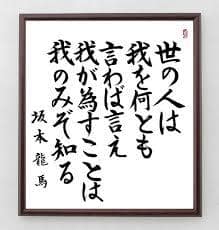 世の人は
我を何とも
言わば言え
我が為すことは
我のみぞ知る
坂本龍馬